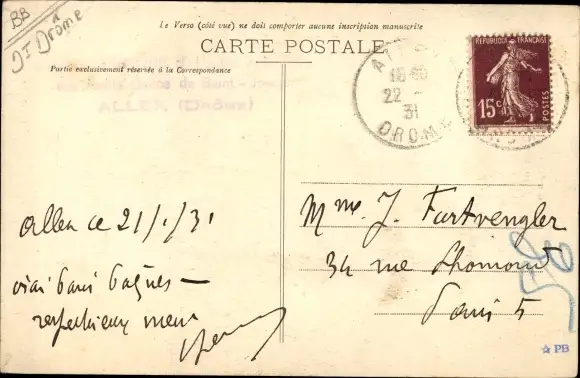 BB
Dt Drôme
Le Verso (côté vue) ne doit comporter aucune inscription manuscrite
CARTE POSTALE
Partie exclusivement réservée à la Correspondance
ALLEX (DRÔME)
REPUBLIQUE FRANÇAISE
15c
POSTES
A
22 -
31
DROME
Allex ce 21/1/31
respectueux
Mme J. Furtvengler
34 rue Lhomond
Paris 5
PB